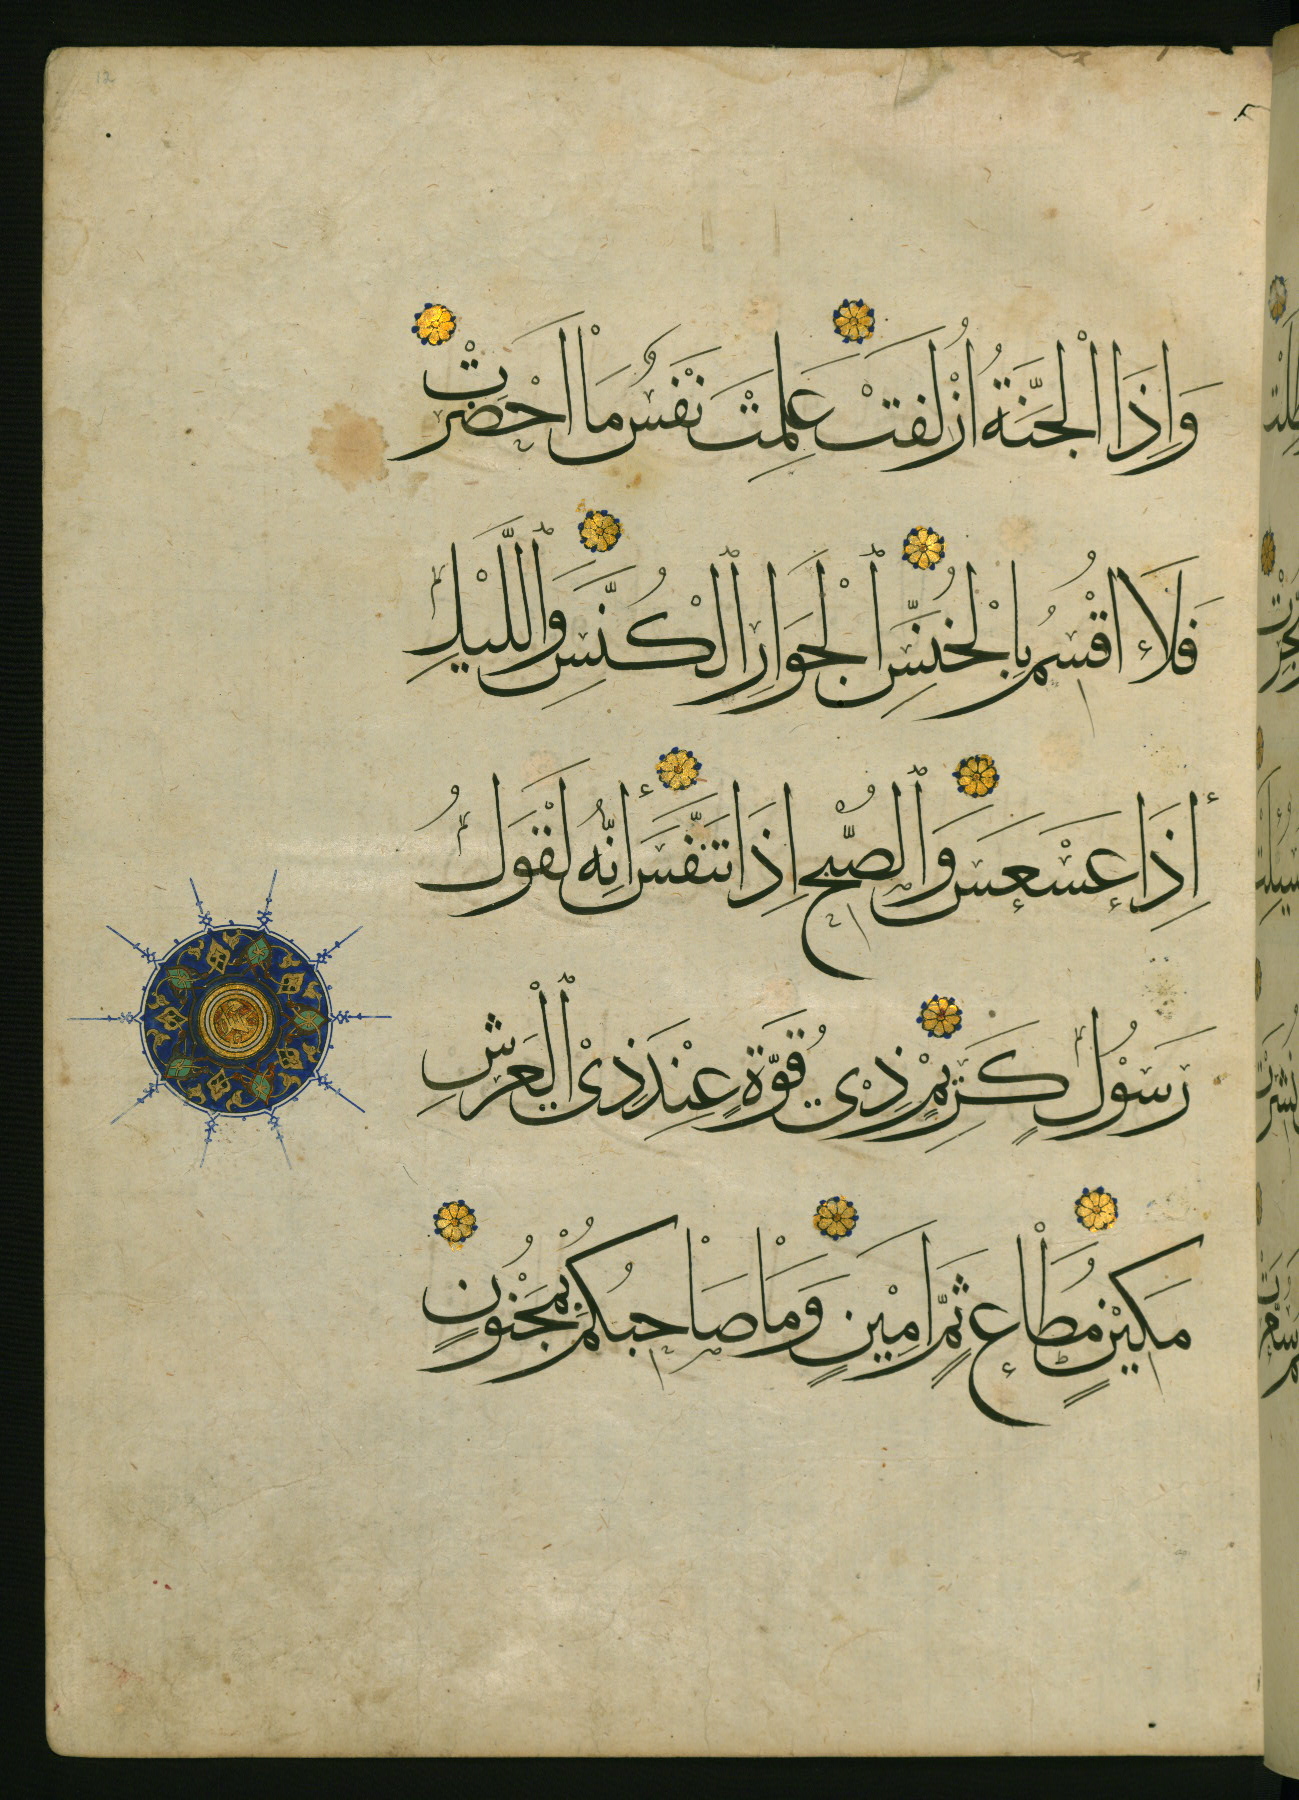 وَاِذَا الْجَنَّةُ اُزْلِفَتْ عَلِمَتْ نَفْسٌ مَا اَحْضَرَتْ
فَلَا اُقْسِمُ بِالْخُنَّسِ الْجَوَارِ الْكُنَّسِ وَاللَّيْلِ
اِذَا عَسْعَسَ وَالصُّبْحِ اِذَا تَنَفَّسَ اِنَّهُ لَقَوْلُ
رَسُوْلٍ كَرِيْمٍ ذِيْ قُوَّةٍ عِنْدَ ذِيْ الْعَرْشِ
مَكِيْنٍ مُطَاعٍ ثَمَّ اَمِيْنٍ وَمَا صَاحِبُكُمْ بِمَجْنُوْنٍ
12